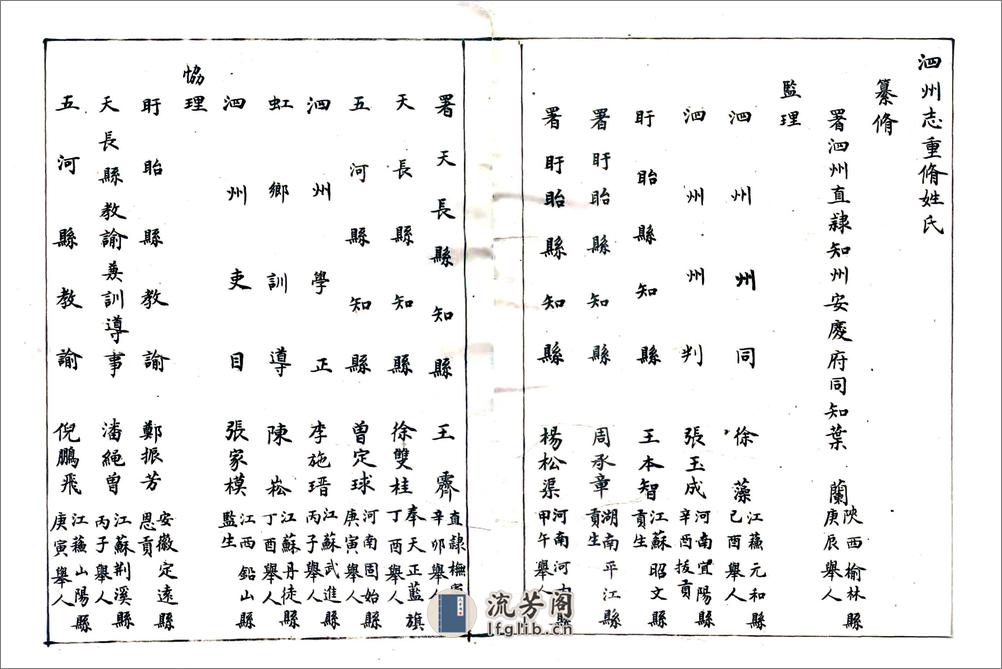 泗州志重脩姓氏
纂脩
署泗州直隸知州安慶府同知葉蘭 陝西榆林縣庚辰舉人
監理
泗州州同徐藻 江蘇元和縣己酉舉人
泗州州判張玉成 河南宜陽縣辛酉拔貢
盱眙縣知縣王本智 江蘇昭文縣貢生
署盱眙縣知縣周承章 湖南平江縣貢生
署盱眙縣知縣楊松渠 河南河縣甲午舉人
署天長縣知縣王霽 直隸撫縣辛卯舉人
天長縣知縣徐雙桂 奉天正藍旗丁酉舉人
五河縣知縣曾定球 河南固始縣庚寅舉人
泗州學正李施瑨 江蘇武進縣丙子舉人
虹鄉訓導陳崧 江蘇丹徒縣丁酉舉人
泗州吏目張家模 江西鉛山縣監生
協理
盱眙縣教諭鄭振芳 安徽定遠縣恩貢
天長縣教諭兼訓導事潘繩曾 江蘇荆溪縣丙子舉人
五河縣教諭倪鵬飛 江蘇山陽縣庚寅舉人
流芳阁
lfglib.cn